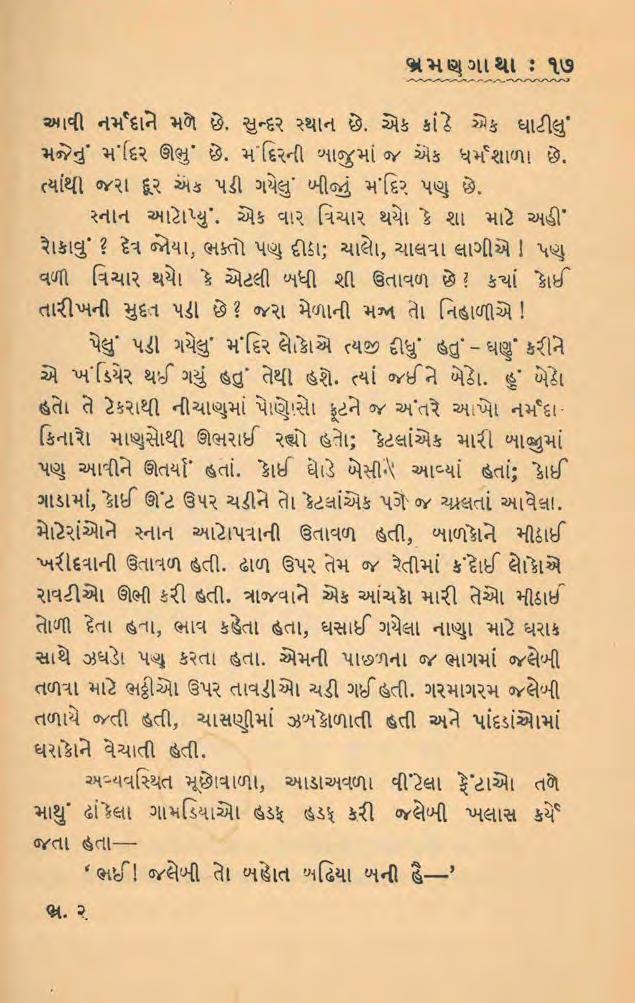 ભ્રમણગાથા : ૧૭
આવી નર્મદાને મળે છે. સુન્દર સ્થાન છે. એક કાંઠે એક ઘાટીલું
મજેનું મંદિર ઊભું છે. મંદિરની બાજુમાં જ એક ધર્મશાળા છે.
ત્યાંથી જરા દૂર એક પડી ગયેલું બીજું મંદિર પણ છે.
સ્નાન આટોપ્યું. એક વાર વિચાર થયો કે શા માટે અહીં
રોકાવું ? દેવ જોયા, ભક્તો પણ દીઠા; ચાલો, ચાલવા લાગીએ ! પણ
વળી વિચાર થયો કે એટલી બધી શી ઉતાવળ છે ? ક્યાં કોઈ
તારીખની મુદત પડી છે ? જરા મેળાની મજા તો નિહાળીએ !
પેલું પડી ગયેલું મંદિર લોકોએ ત્યજી દીધું હતું – ઘણું કરીને
એ ખંડિયેર થઈ ગયું હતું તેથી હશે. ત્યાં જઈને બેઠો. હું બેઠો
હતો તે ટેકરાથી નીચાણમાં પોણોસો ફૂટને જ અંતરે આખો નર્મદા-
કિનારો માણસોથી ઊભરાઈ રહ્યો હતો; કેટલાંએક મારી બાજુમાં
પણ આવીને ઊતર્યાં હતાં. કોઈ ઘોડે બેસીને આવ્યાં હતાં; કોઈ
ગાડામાં, કોઈ ઊંટ ઉપર ચડીને તો કેટલાંએક પગે જ ચાલતાં આવેલા.
મોટેરાંઓને સ્નાન આટોપવાની ઉતાવળ હતી, બાળકોને મીઠાઈ
ખરીદવાની ઉતાવળ હતી. ઢાળ ઉપર તેમ જ રેતીમાં કંદોઈ લોકોએ
રાવટીઓ ઊભી કરી હતી. ત્રાજવાને એક આંચકો મારી તેઓ મીઠાઈ
તોળી દેતા હતા, ભાવ કહેતા હતા, ઘસાઈ ગયેલા નાણા માટે ઘરાક
સાથે ઝઘડો પણ કરતા હતા. એમની પાછળના જ ભાગમાં જલેબી
તળવા માટે ભઠ્ઠીઓ ઉપર તાવડીઓ ચડી ગઈ હતી. ગરમાગરમ જલેબી
તળાયે જતી હતી, ચાસણીમાં ઝબકોળાતી હતી અને પાંદડાંઓમાં
ઘરાકોને વેચાતી હતી.
અવ્યવસ્થિત મૂછોવાળા, આડાઅવળા વીંટેલા ફેંટાઓ તળે
માથું ઢાંકેલા ગામડિયાઓ હડફ હડફ કરી જલેબી ખલાસ કર્યે
જતા હતા—
‘ ભઈ ! જલેબી તો બહોત બઢિયા બની હૈ—’
ભ્ર. ૨